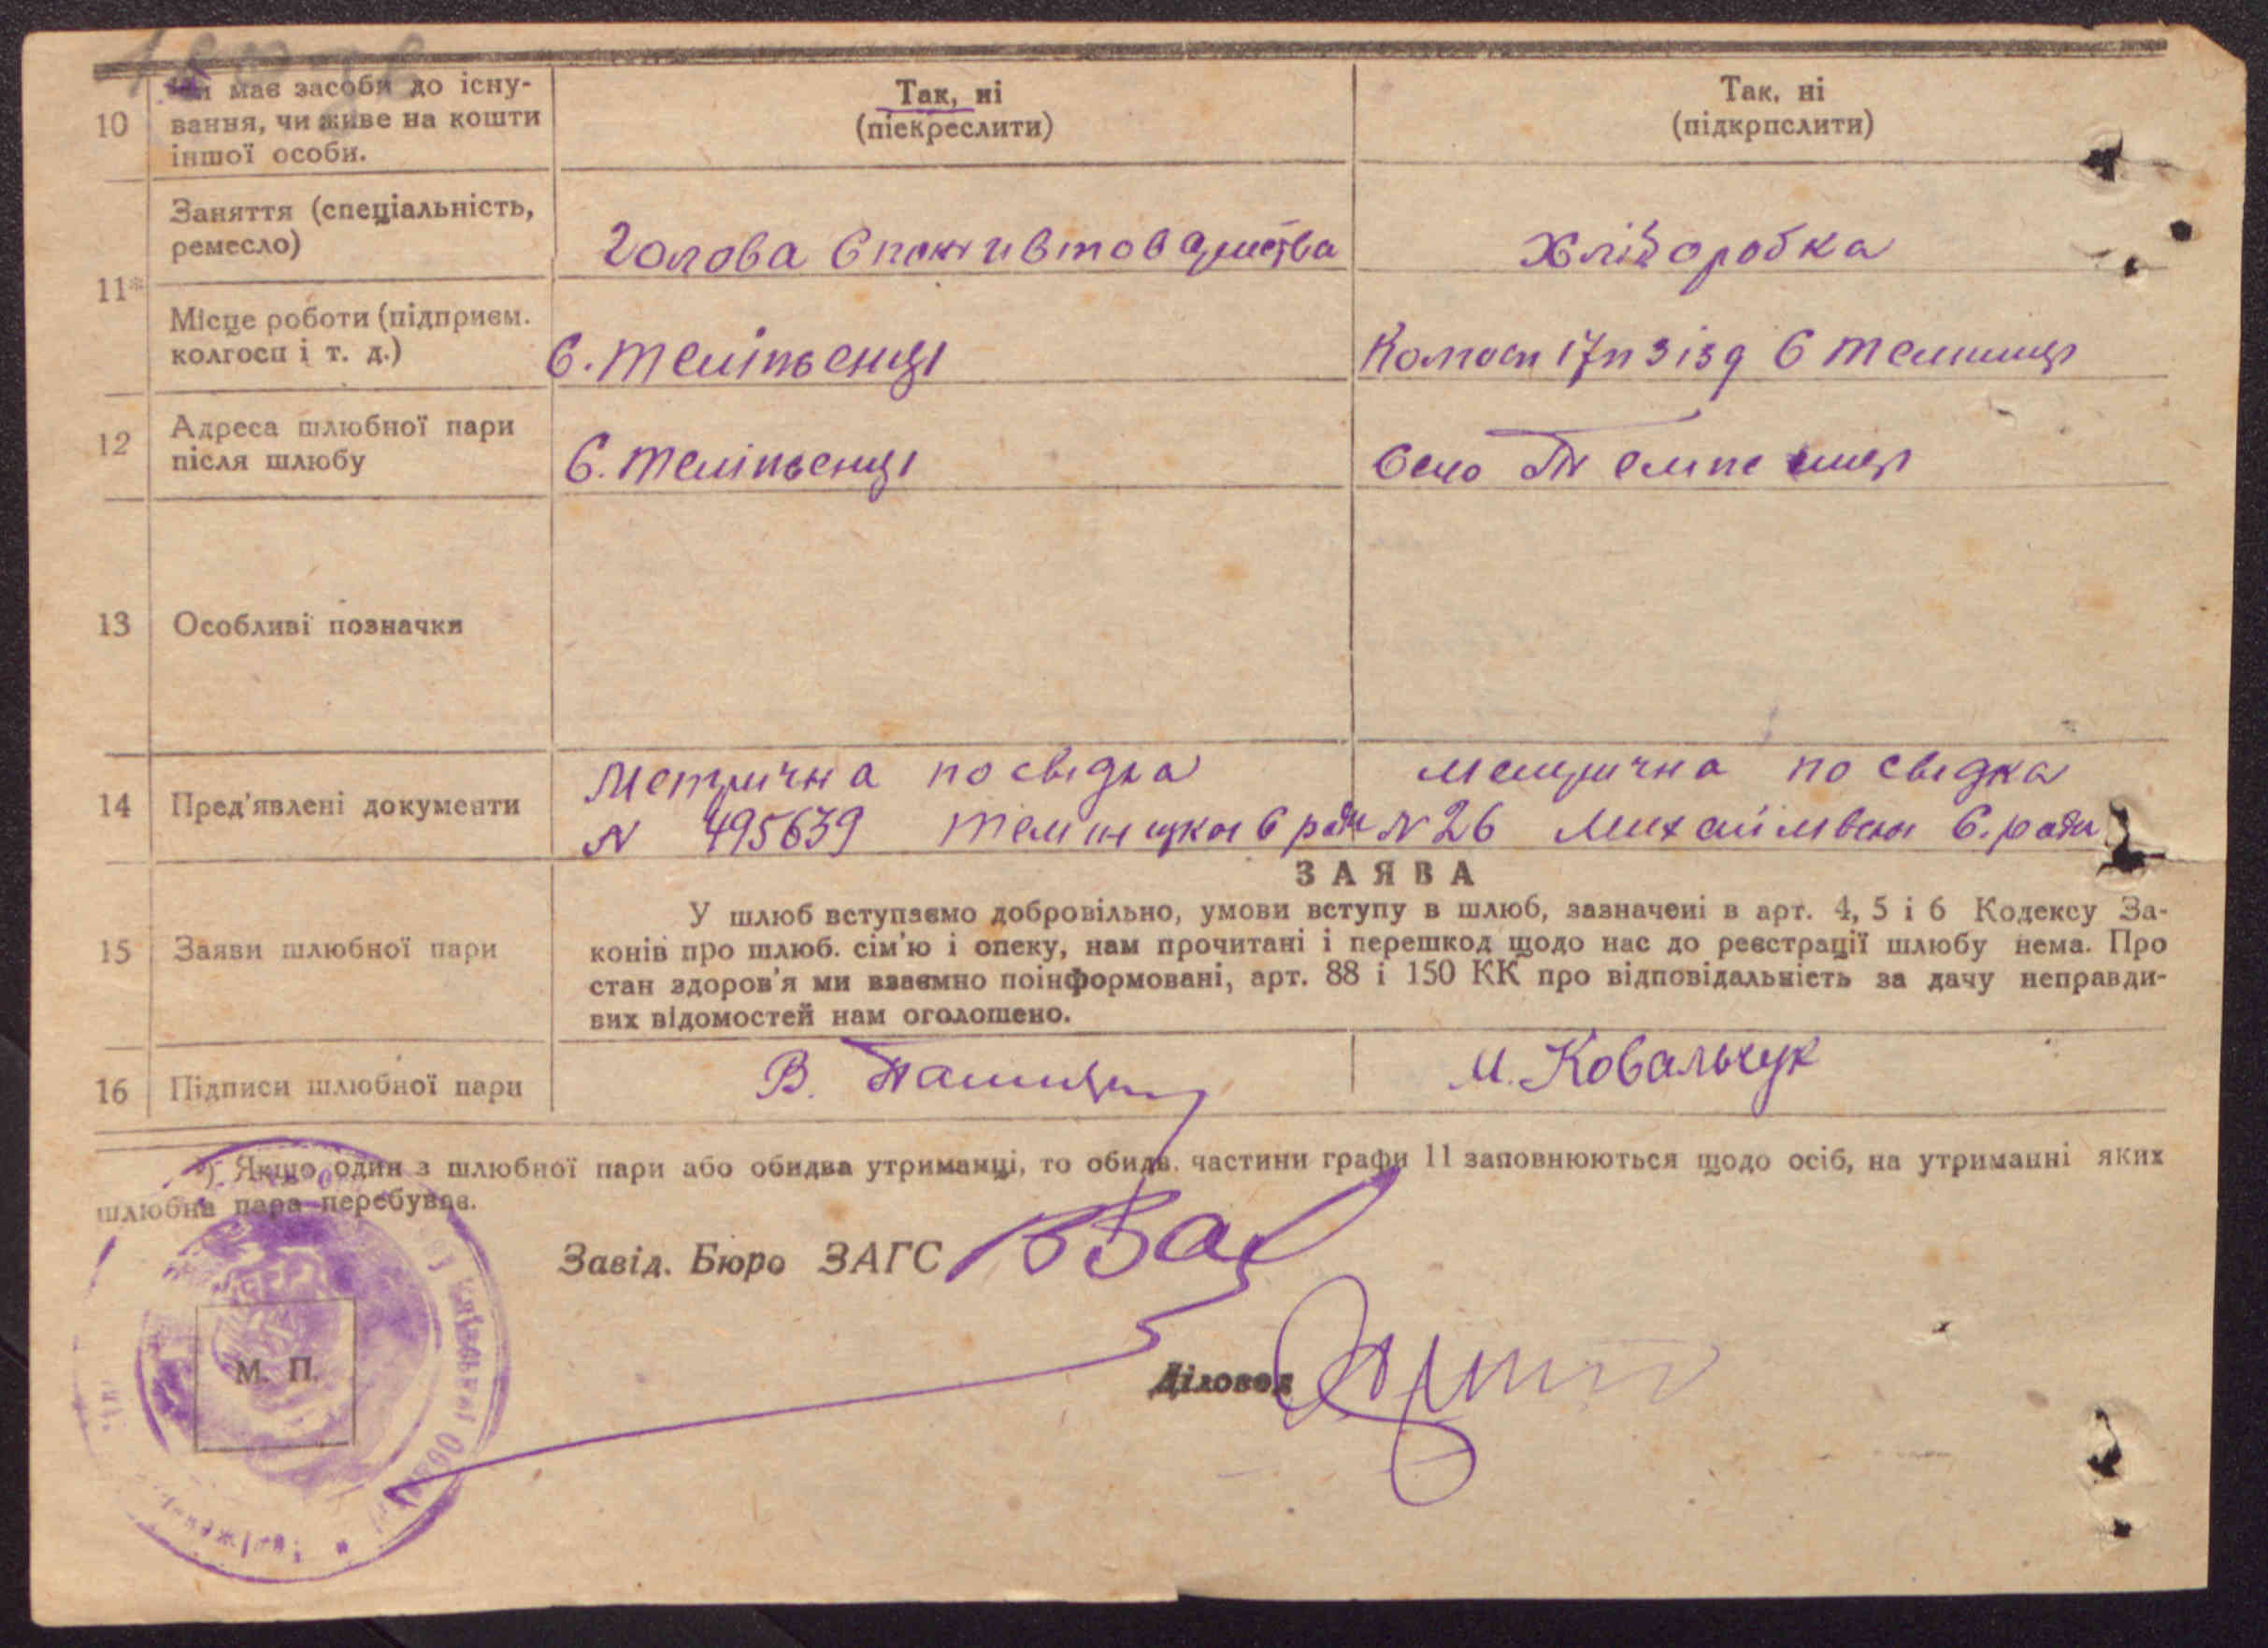 10
Чи має засоби до існу-
вання, чи живе на кошти
іншої особи.
Так, ні
(піекреслити)
Так, ні
(підкрпслити)
11*
Заняття (спеціальність,
ремесло)
Голова Споживтовариства
Хліборобка
Місце роботи (підприєм.
колгосп і т. д.)
С. Теліженці
17 п з'ізд С
12
Адреса шлюбної пари
після шлюбу
С. Теліженці
Село
13
Особливі позначки
14
Пред'явлені документи
Метрична посвідка
N 495639 С ради
Метрична посвідка
N 26 С. ради
15
Заяви шлюбної пари
ЗАЯВА
У шлюб вступаємо добровільно, умови вступу в шлюб, зазначені в арт. 4, 5 і 6 Кодексу За-
конів про шлюб. сім'ю і опеку, нам прочитані і перешкод щодо нас до реєстрації шлюбу нема. Про
стан здоров'я ми взаємно поінформовані, арт. 88 і 150 КК про відповідальність за дачу неправди-
вих відомостей нам оголошено.
16
Підписи шлюбної пари
В.
М. Ковальчук
*) Якщо один з шлюбної пари або обидва утриманці, то обидв. частини графи 11 заповнюються щодо осіб, на утриманні яких
шлюбна пара перебуває.
Завід. Бюро ЗАГС
М. П.
Діловод
Київської